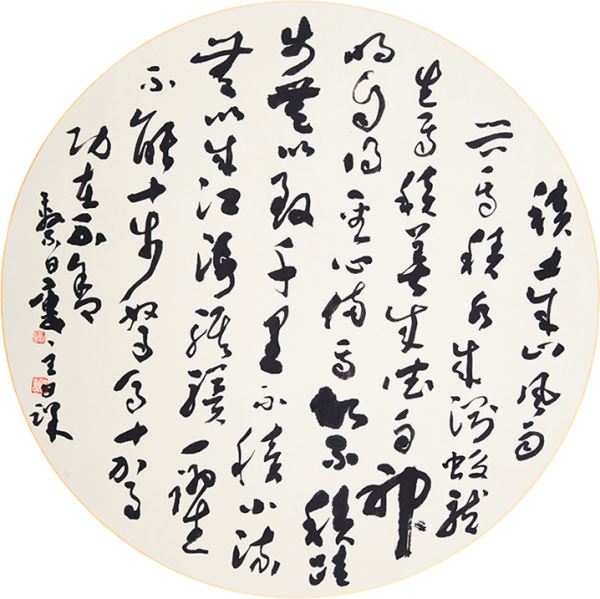 積土成山风雨
兴焉積水成渊蛟龙
生焉積善成德而神
明自得聖心備焉故不積跬
步無以致千里不積小流
無以成江海骐骥一躍
不能十步驽馬十驾
功在不舍